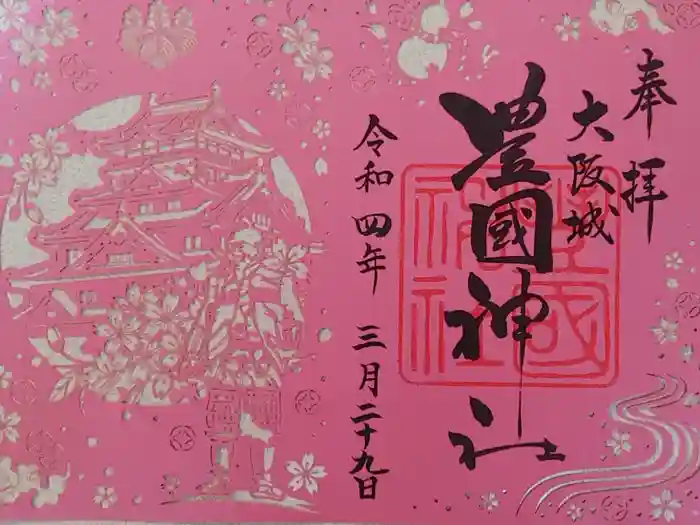 奉拝
大阪城
豊國神社
令和四年 三月二十九日